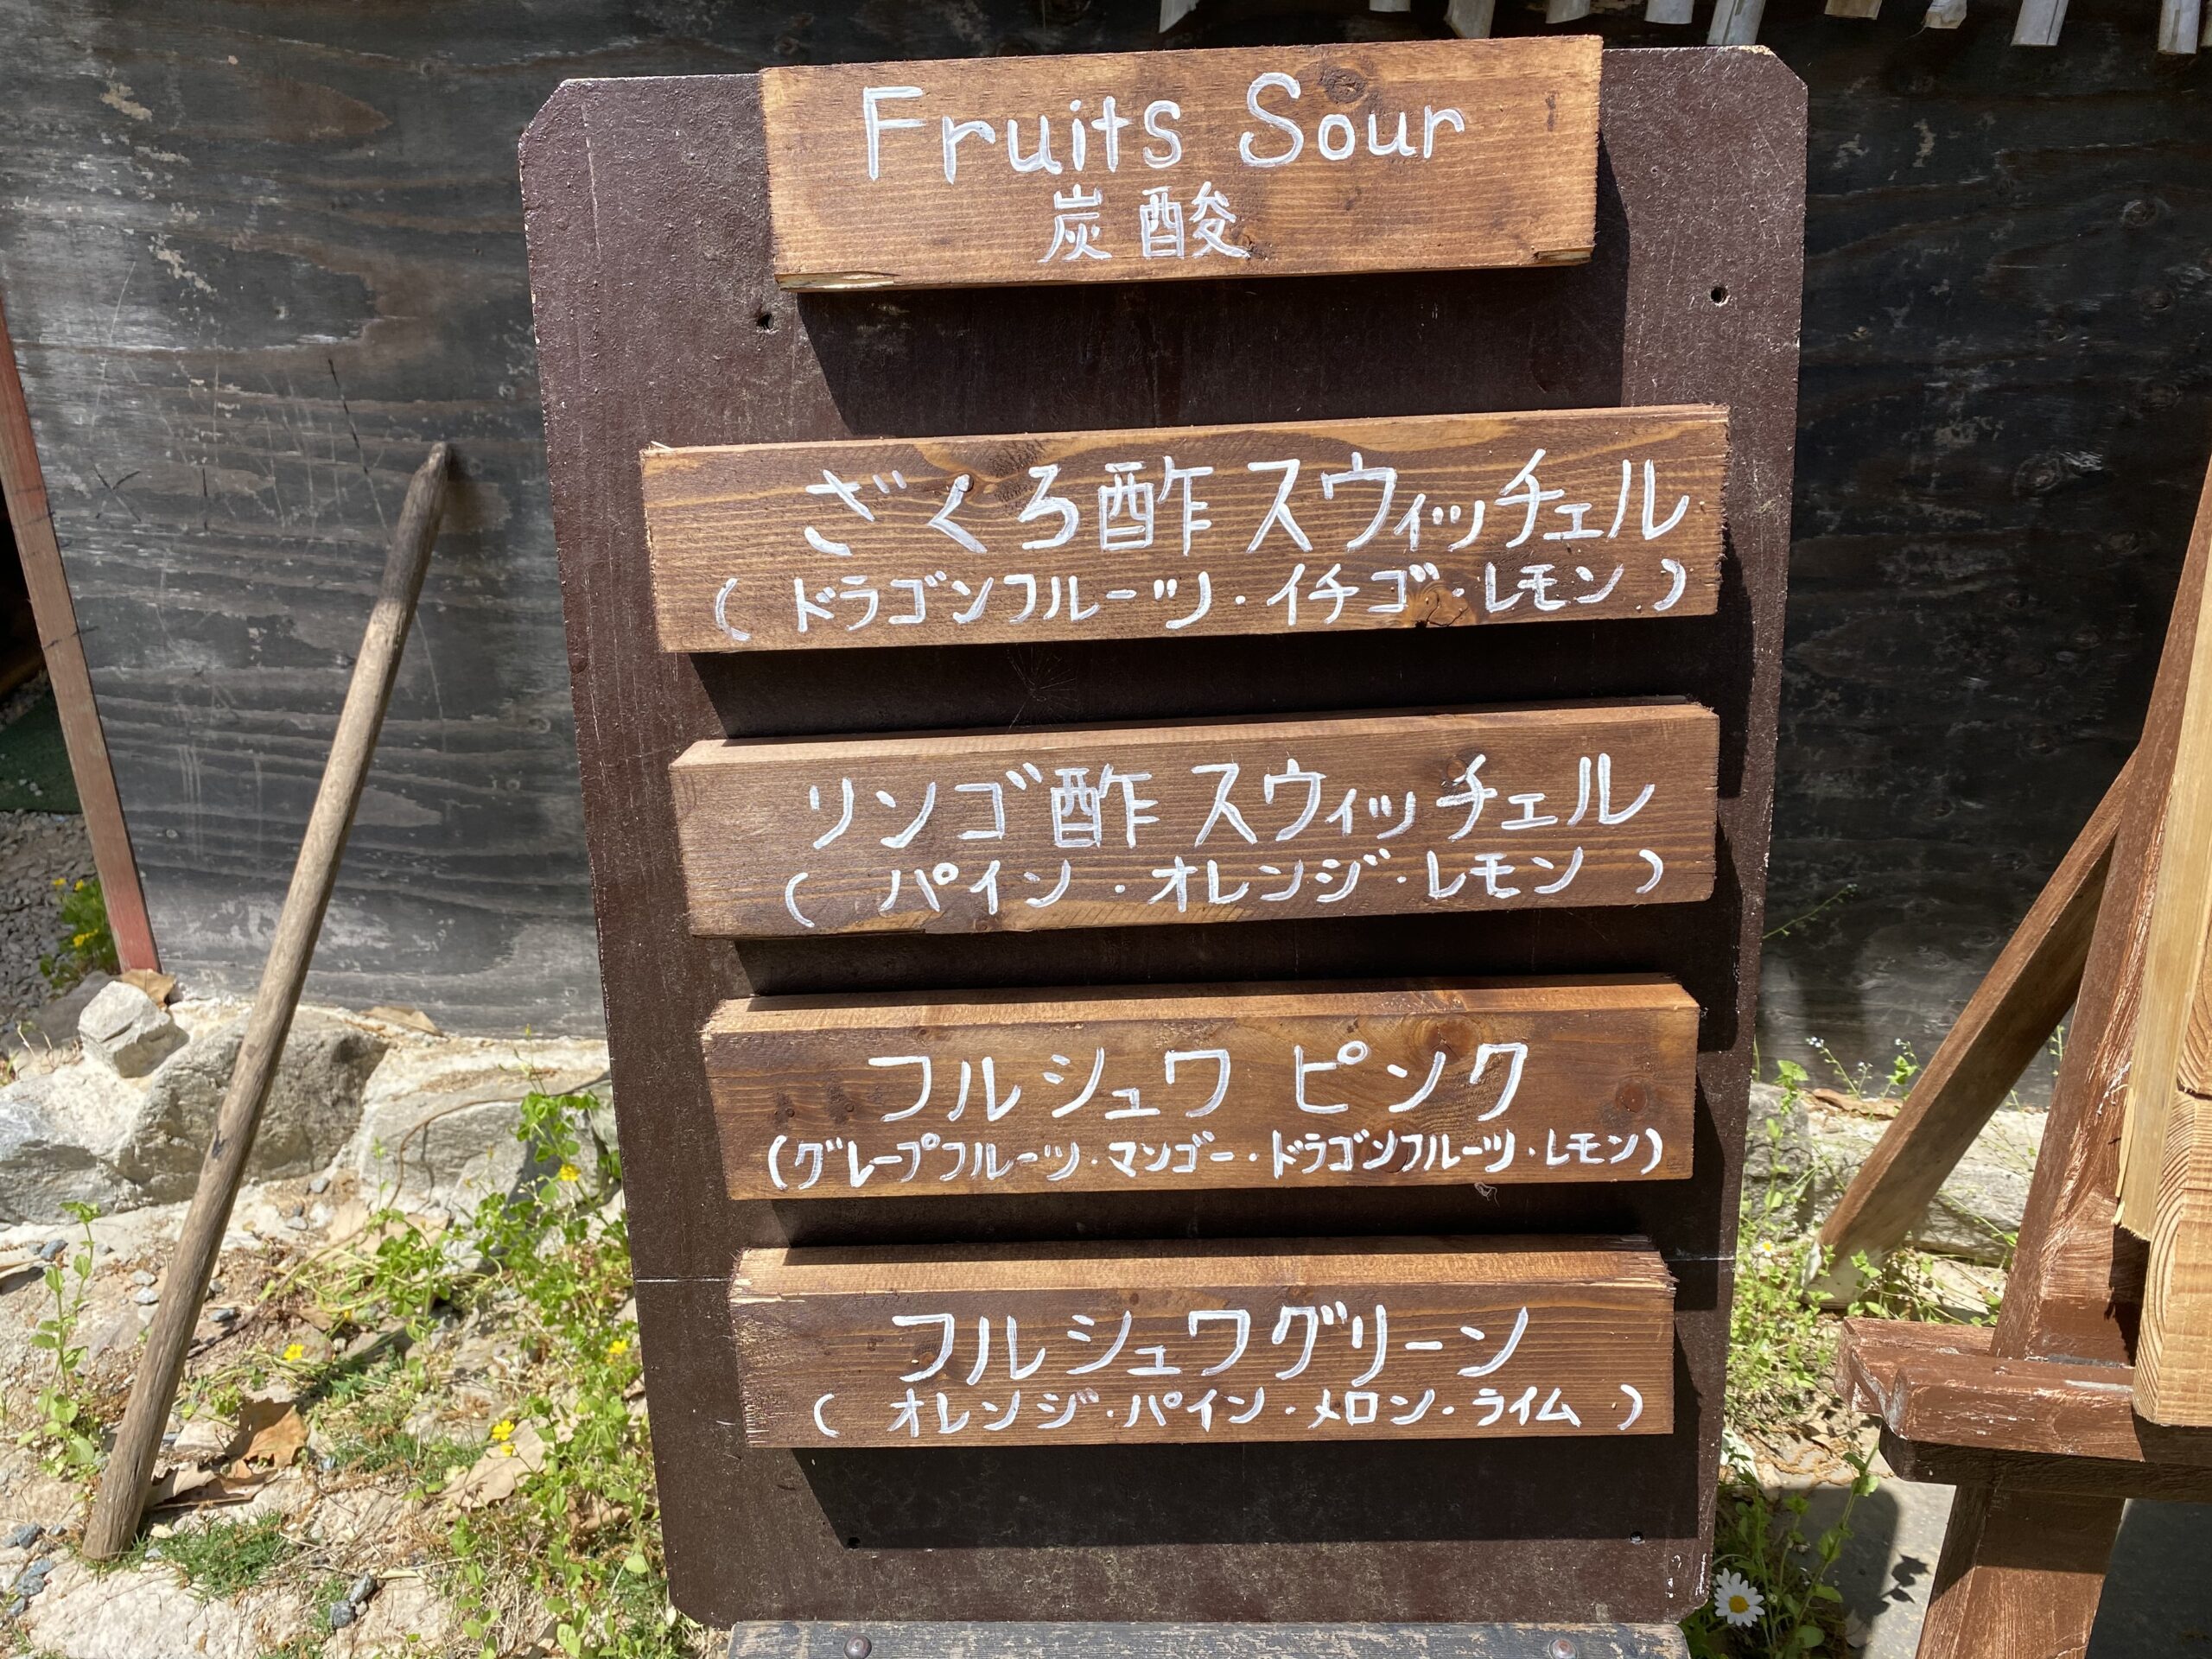 Fruits Sour
炭酸
ざくろ酢 スウィッチェル
( ドラゴンフルーツ・イチゴ・レモン )
リンゴ酢 スウィッチェル
( パイン・オレンジ・レモン )
フルシュワ ピンク
(グレープフルーツ・マンゴー・ドラゴンフルーツ・レモン)
フルシュワグリーン
( オレンジ・パイン・メロン・ライム )